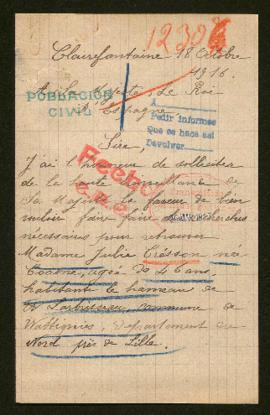 12308
Clairefontaine 18 Octobre
1916.
A Sa Majesté Le Roi
d'Espagne
POBLACION
CIVIL
A
Pedir informes
Que se hace así
Devolver
Sire,
J'ai l'honneur de solliciter
de la haute bienveillance de
Sa Majesté la faveur de bien
vouloir faire faire recherches
nécessaires pour retrouver
Madame Julie Crésson née
âgée de 46 ans,
habitante le hameau de
commune de
Wattignies, département du
Nord près de Lille.